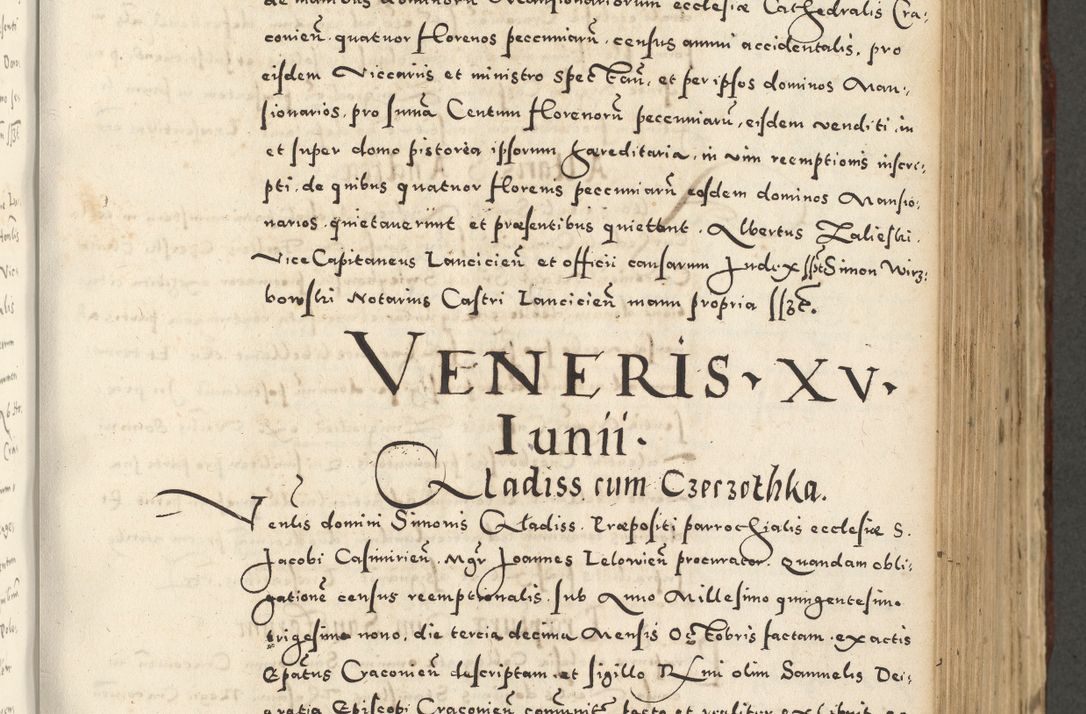 de manibus dominorum Mansionariorum ecclesiæ Cathedralis Cra:
conien̄. quatuor florenos peccuniarū. census annui accidentalis, pro
eisdem Viccariis et ministro spectan̄. et per ipsos dominos Man:
sionarios. pro sum̄a Centum florenorū peccuniarū. eisdem venditi. in
et super domo pistorea ipsorum hæreditaria. in vim reemptionis inscri:
pti. de quibus quatuor florenis peccuniarū eosdem dominos Mansio:
narios. quietaverunt et præsentibus quietant. Albertus Zalieski.
Vice Capitaneus Lancicien̄ et officii causarum Judex sspt Simon Wirz:
bowski Notarius Castri Lancicien̄ manu propria sszt.
VENERIS. XV.
Iunii.
Gladiss cum Czerzothka.
Venlis domini Simonis Gladiss. Præpositi parrochialis ecclesiæ S.
Jacobi Casimirien̄. Mgr̄ Joannes Lelowien̄ procurator. Quandam obli:
gationē census reemptionalis. sub Anno Millesimo quingentesimo
trigesimo nono. die tercia decima Mensis Octobris factam. ex actis
Epātus Cracovien̄ descriptam. et sigillo R̄mi olim Samuelis Dei:
gratia Episcopi Cracovien̄